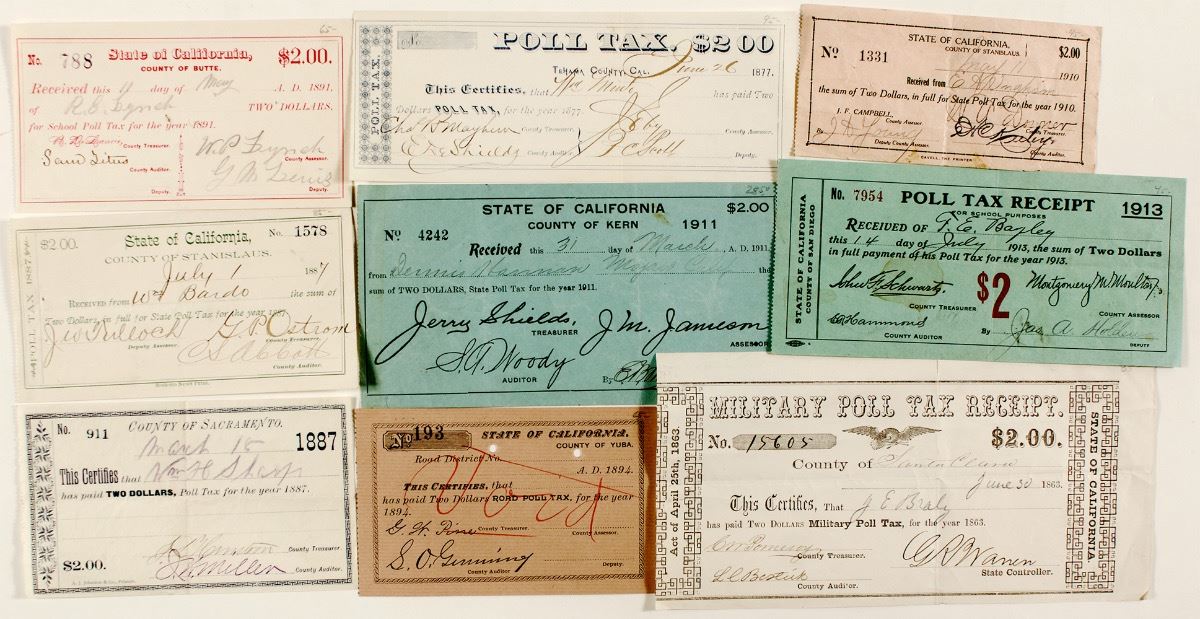 65-
State of California,
No. 788 $2.00.
COUNTY OF BUTTE.
Received this 11 day of May A. D. 1891,
of R. E. Lynch TWO DOLLARS,
for School Poll Tax for the year 1891.
County Treasurer.
W. P. Lynch
County Assessor.
County Auditor.
Deputy.
95-
No.
POLL TAX. $2.00
POLL TAX.
TEHAMA COUNTY, CAL. June 26 1877.
This Certifies, that has paid Two
Dollars POLL TAX, for the year 1877
Chas. B. Mayhew County Treasurer.
County Assessor.
County Auditor.
Deputy.
STATE OF CALIFORNIA,
COUNTY OF STANISLAUS.
No 1331 $2.00
May 1910
Received from
the sum of Two Dollars, in full for State Poll Tax for the year 1910.
J. F. CAMPBELL,
County Assessor.
County Treasurer.
By
Deputy Assessor.
County Auditor.
CAVELL, THE PRINTER
$2.00.
State of California, No. 1578
COUNTY OF STANISLAUS.
POLL TAX 1887
July 1 1887
RECEIVED FROM Wm Bardo the sum of
Two Dollars, in full for State Poll Tax for the year 1887.
J W Tulloch
G. P. Ostrom
Deputy Assessor.
County Treasurer.
C S Abbott
County Auditor.
2850
STATE OF CALIFORNIA $2.00
COUNTY OF KERN 1911
No 4242 Received this 31 day of March A. D. 1911,
from Dennis the
sum of TWO DOLLARS, State Poll Tax for the year 1911.
Jerry Shields,
TREASURER
J. M. Jameson
ASSESSOR
S. A. Woody
AUDITOR
By
45-
No. 7954 POLL TAX RECEIPT 1913
FOR SCHOOL PURPOSES
STATE OF CALIFORNIA
COUNTY OF SAN DIEGO
RECEIVED OF F. E. Bagley
this 14 day of July 1913, the sum of Two Dollars
in full payment of his Poll Tax for the year 1913.
John F. Schwartz
COUNTY TREASURER
$2
Montgomery M. Moulton
COUNTY ASSESSOR
Hammond
COUNTY AUDITOR
By Jas. A. Holden
DEPUTY
No. 911 COUNTY OF SACRAMENTO. 1887
March 15
This Certifies that Wm H Sharp
has paid TWO DOLLARS, Poll Tax for the year 1887.
County Treasurer.
$2.00.
County Auditor.
No 193 STATE OF CALIFORNIA.
COUNTY OF YUBA.
Road District No. A. D. 1894.
Void
THIS CERTIFIES, that
has paid Two Dollars ROAD POLL TAX, for the year
1894.
G. W. Pine
County Treasurer.
County Assessor.
S. O. Gunning
County Auditor
Deputy.
MILITARY POLL TAX RECEIPT.
Act of April 25th, 1863.
STATE OF CALIFORNIA.
No. 15605 $2.00.
County of Santa Clara
June 30 1863.
This Certifies, That J E Braly
has paid TWO DOLLARS Military Poll Tax, for the year 1863.
County Treasurer.
G R Warren
State Controller.
County Auditor.